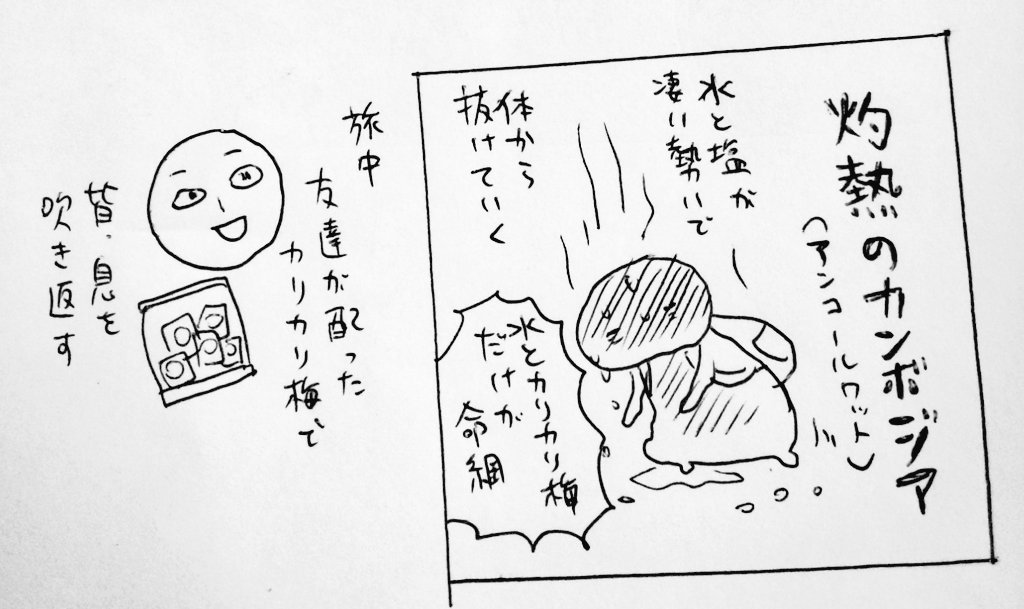 灼熱のカンボジア
(アンコールワット)
水と塩が
凄い勢いで
体から
抜けていく
水とカリカリ梅
だけが
命綱
旅中
友達が配った
カリカリ梅で
皆、息を
吹き返す